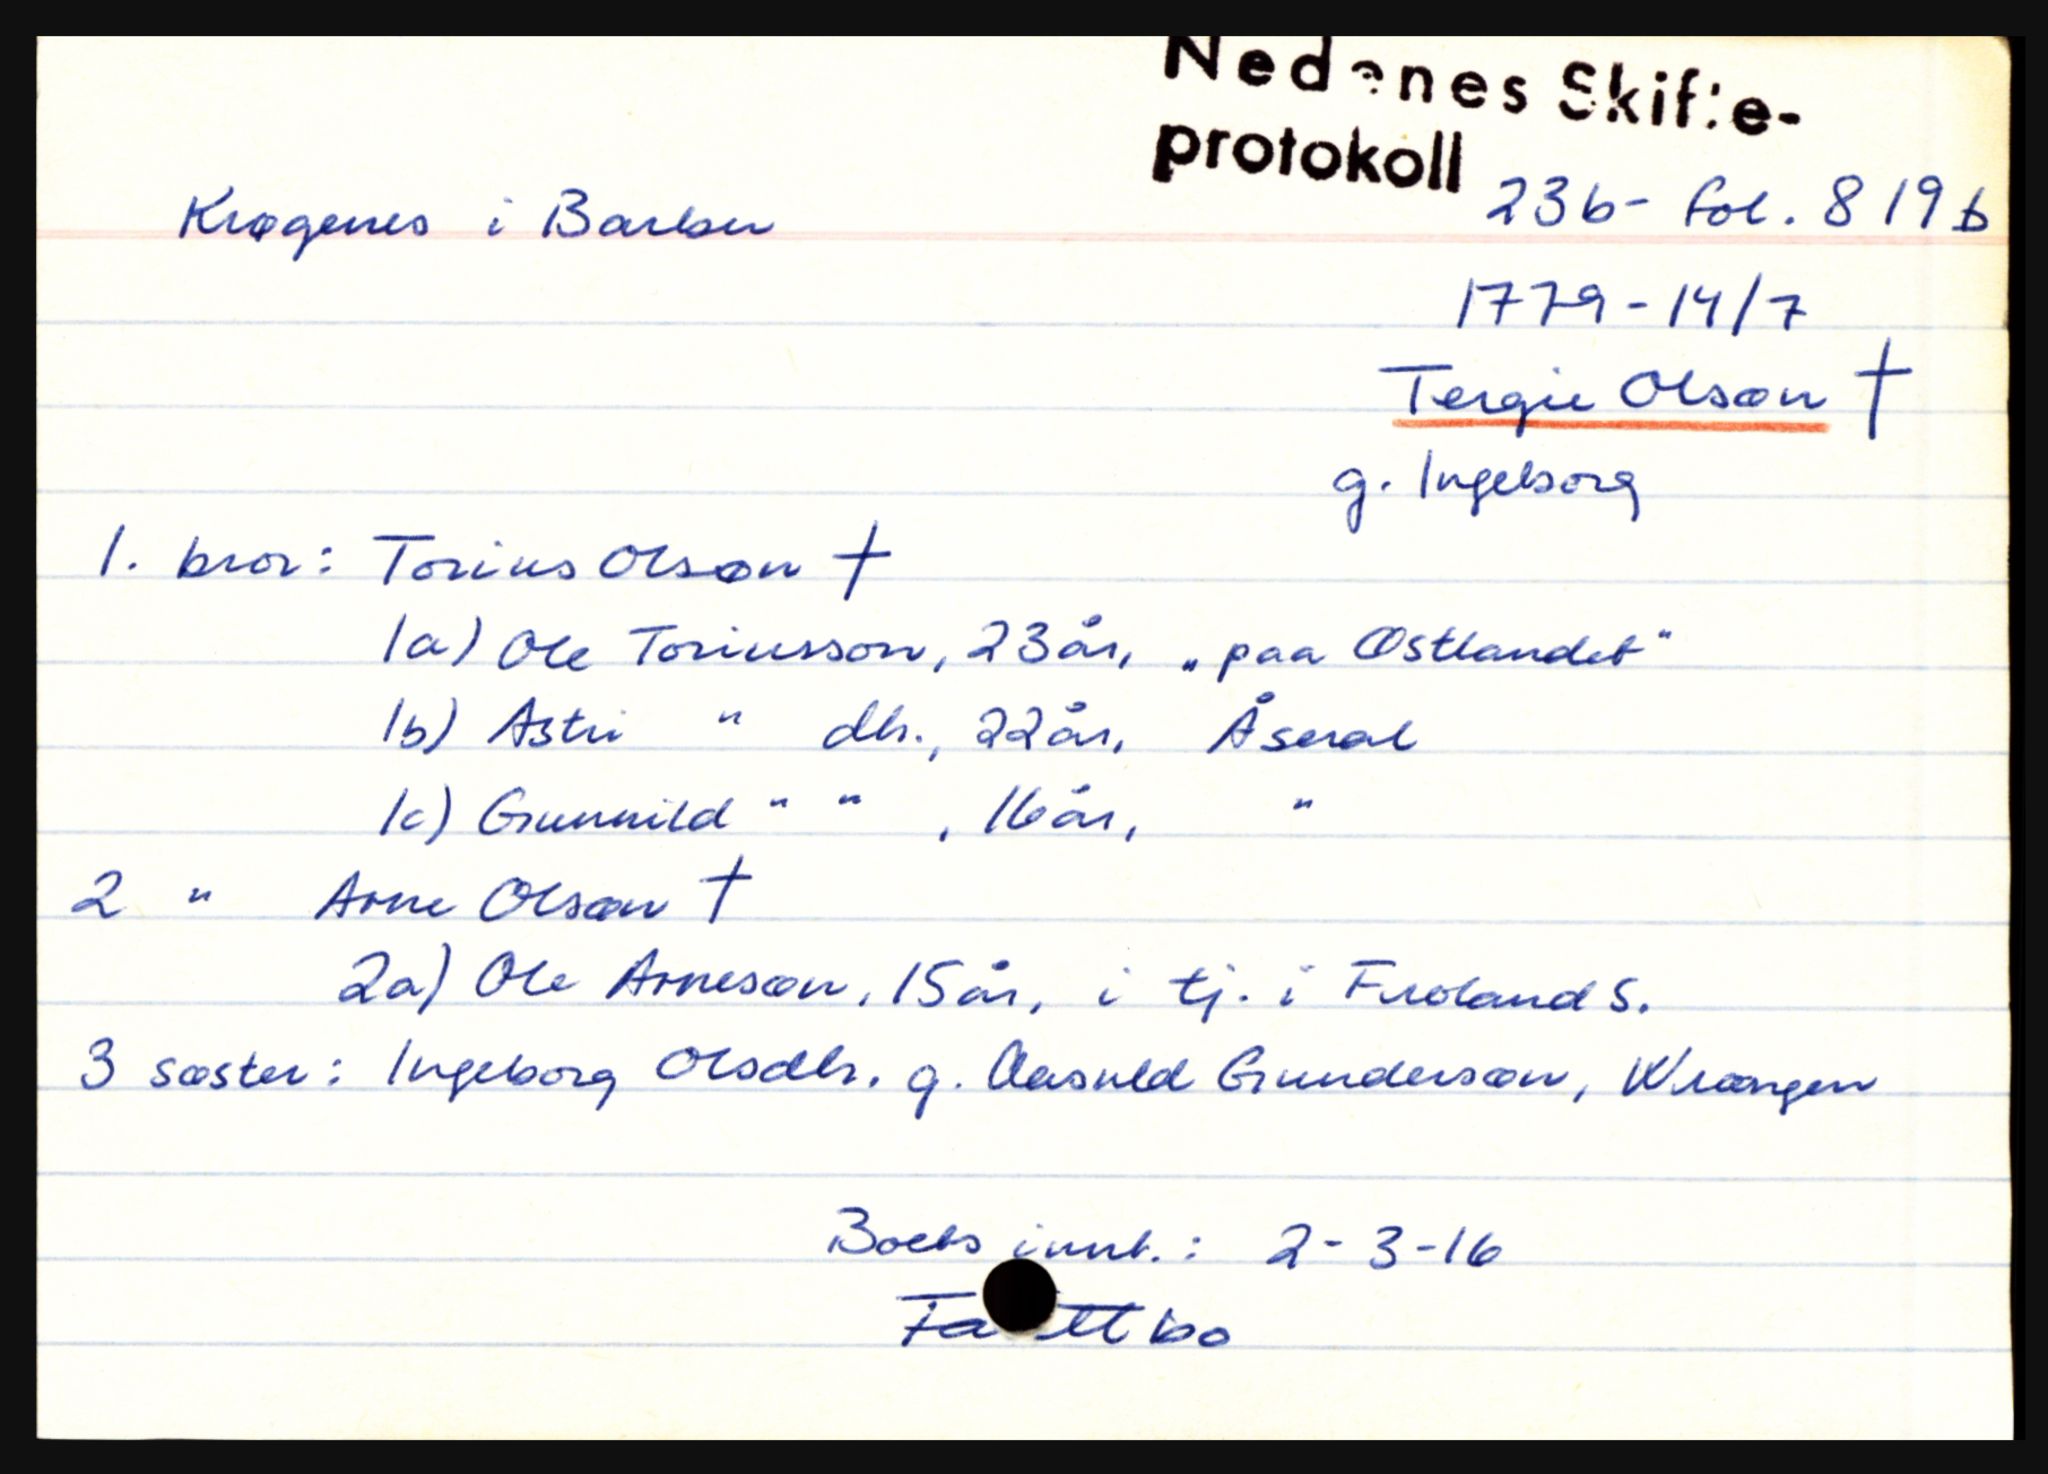 Nedenes Skifte-
protokoll
Krøgenes i Barbu 23b- fol. 819b
1779-14/7
Tergie Olsøn †
g. Ingeborg
1. bror: Torius Olsøn †
1a) Ole Toriusson, 23 år, „paa Østlandet"
1b) Astri " dtr., 22 år, Åseral
1c) Gunnild " " , 16 år, "
2 " Arne Olsøn †
2a) Ole Arnesøn, 15 år, i tj. i Froland s.
3 søster: Ingeborg Olsdtr. g. Aasuld Gundersøn, Wrængen
Boets innt.: 2-3-16